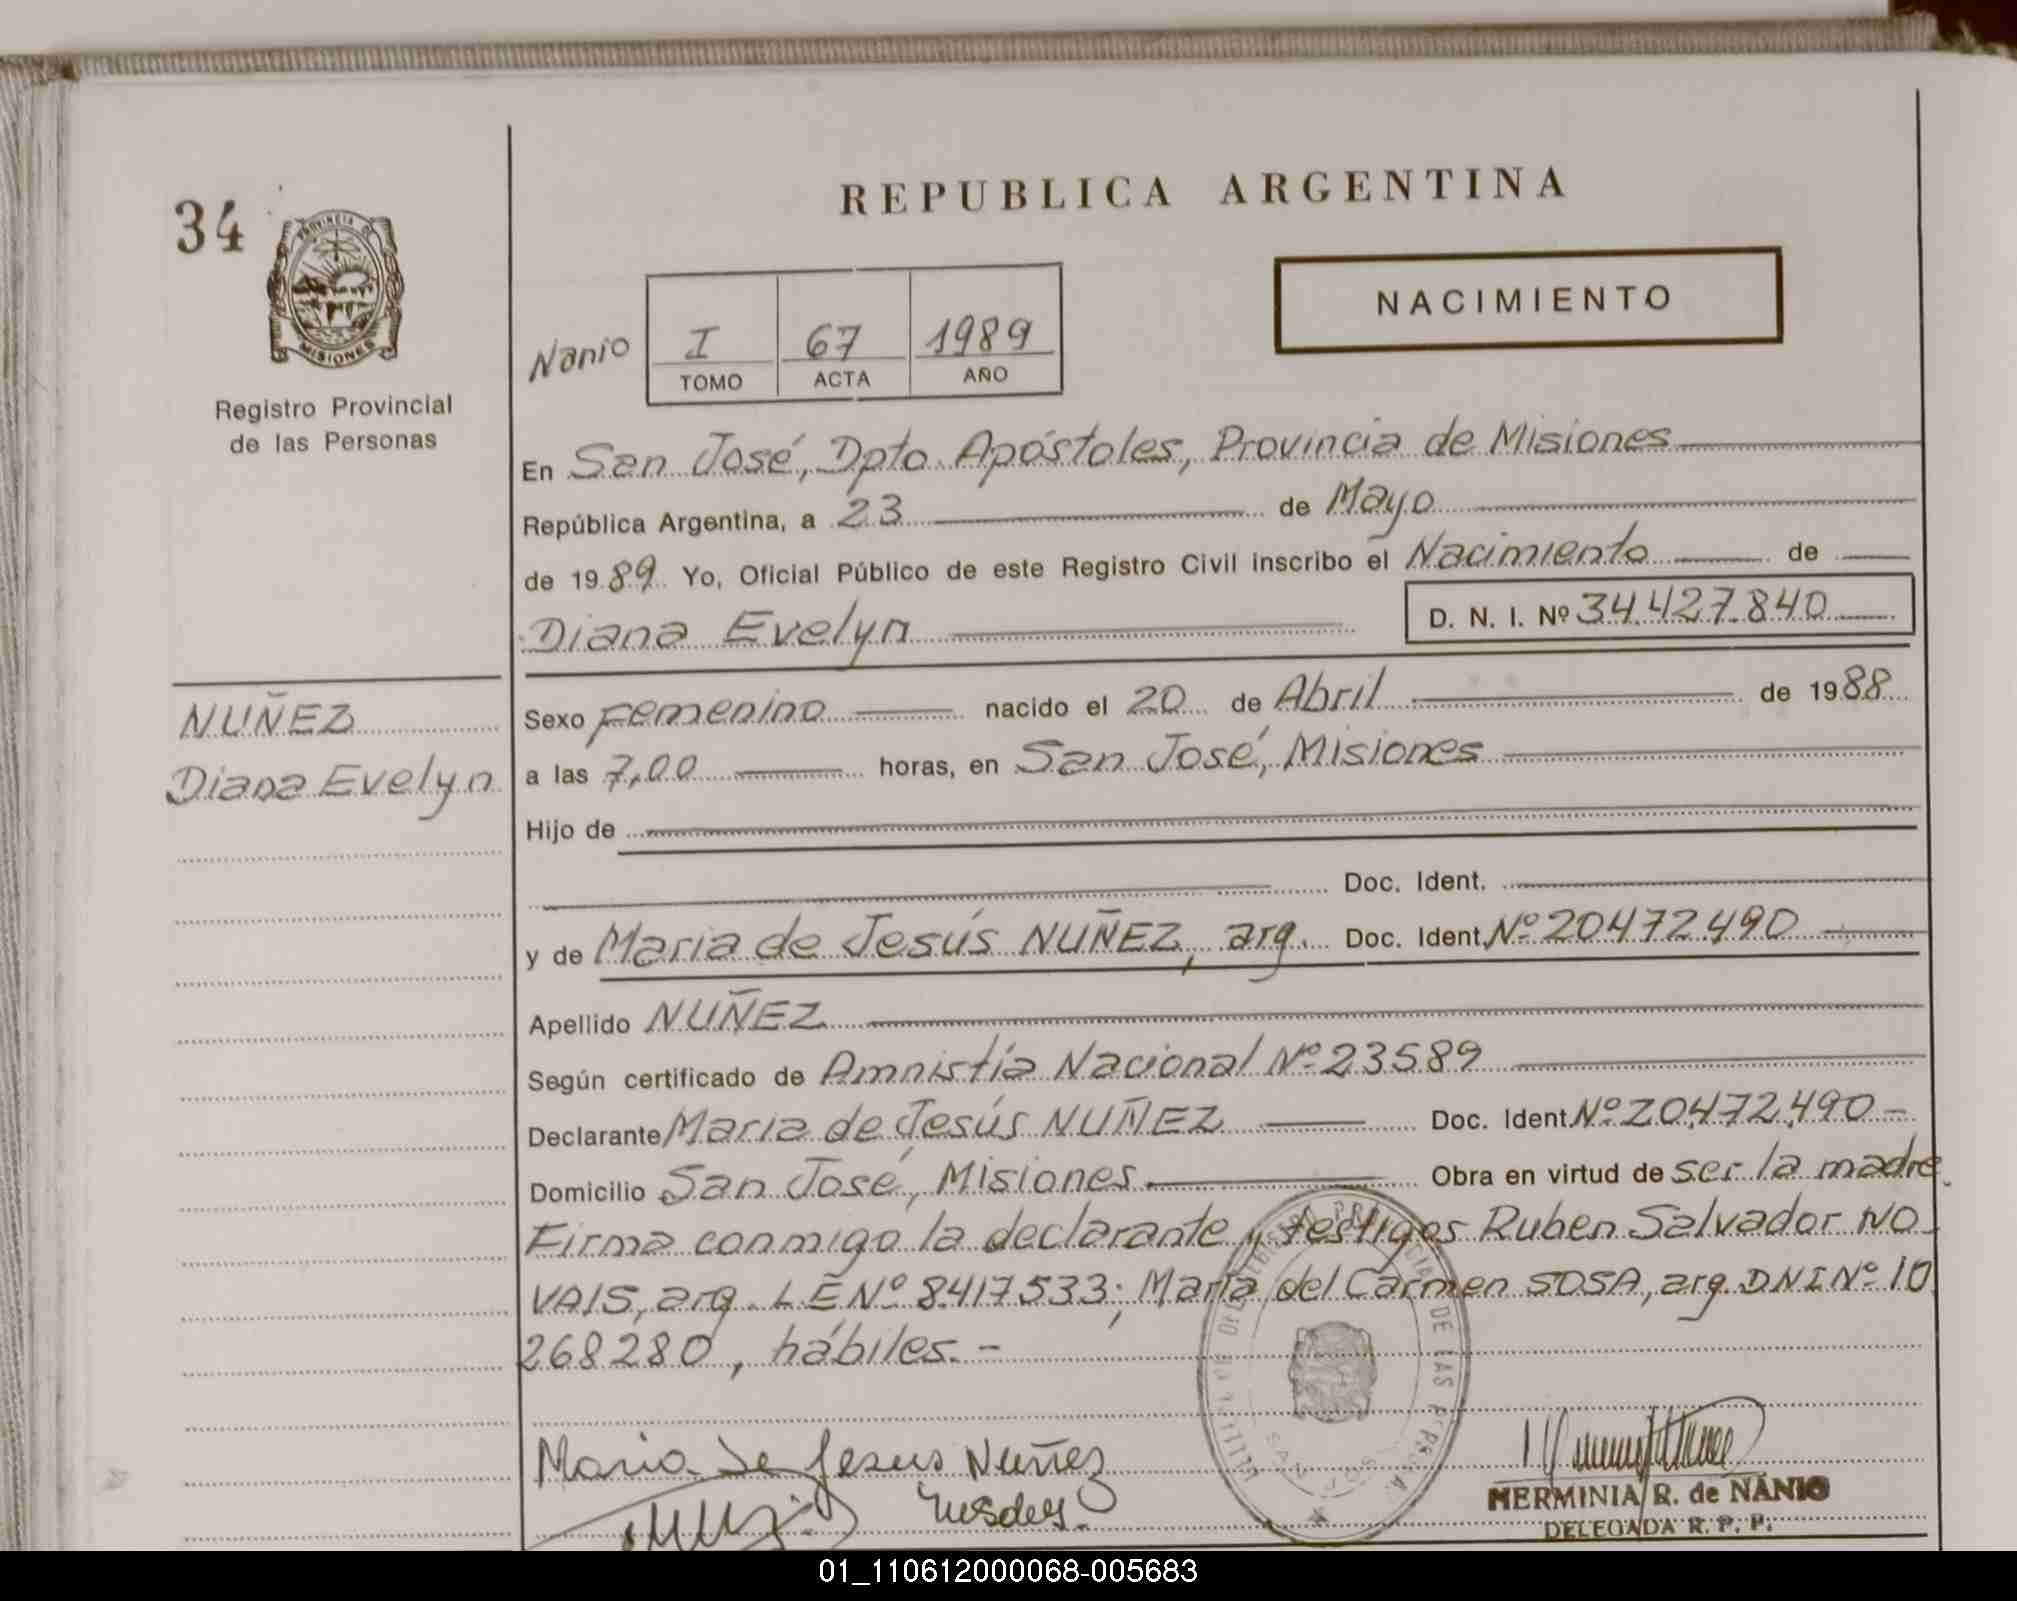 34
PROVINCIA DE
MISIONES
Registro Provincial
de las Personas
REPUBLICA ARGENTINA
NACIMIENTO
Nanio
I 67 1989
TOMO ACTA AÑO
En San José, Dpto. Apóstoles, Provincia de Misiones
República Argentina, a 23 de Mayo
de 1989 Yo, Oficial Público de este Registro Civil inscribo el Nacimiento de
Diana Evelyn D. N. I. Nº 34.427.840
NUÑEZ
Diana Evelyn
Sexo Femenino nacido el 20 de Abril de 1988
a las 7,00 horas, en San José, Misiones
Hijo de
Doc. Ident.
y de Maria de Jesús NUÑEZ, arg. Doc. Ident. Nº 20472490
Apellido NUÑEZ
Según certificado de Amnistía Nacional Nº 23589
Declarante Maria de Jesús NUÑEZ Doc. Ident. Nº 20,472,490 -
Domicilio San José, Misiones Obra en virtud de ser la madre.
Firma conmigo la declarante y testigos Ruben Salvador NO_
VAIS, arg. LE Nº 8417533; María del Carmen SOSA, arg. DNI Nº 10
268280, hábiles. -
Maria de Jesus Nuñez
HERMINIA R. de NÁNIO
DELEGADA R. P. P.
01_110612000068-005683